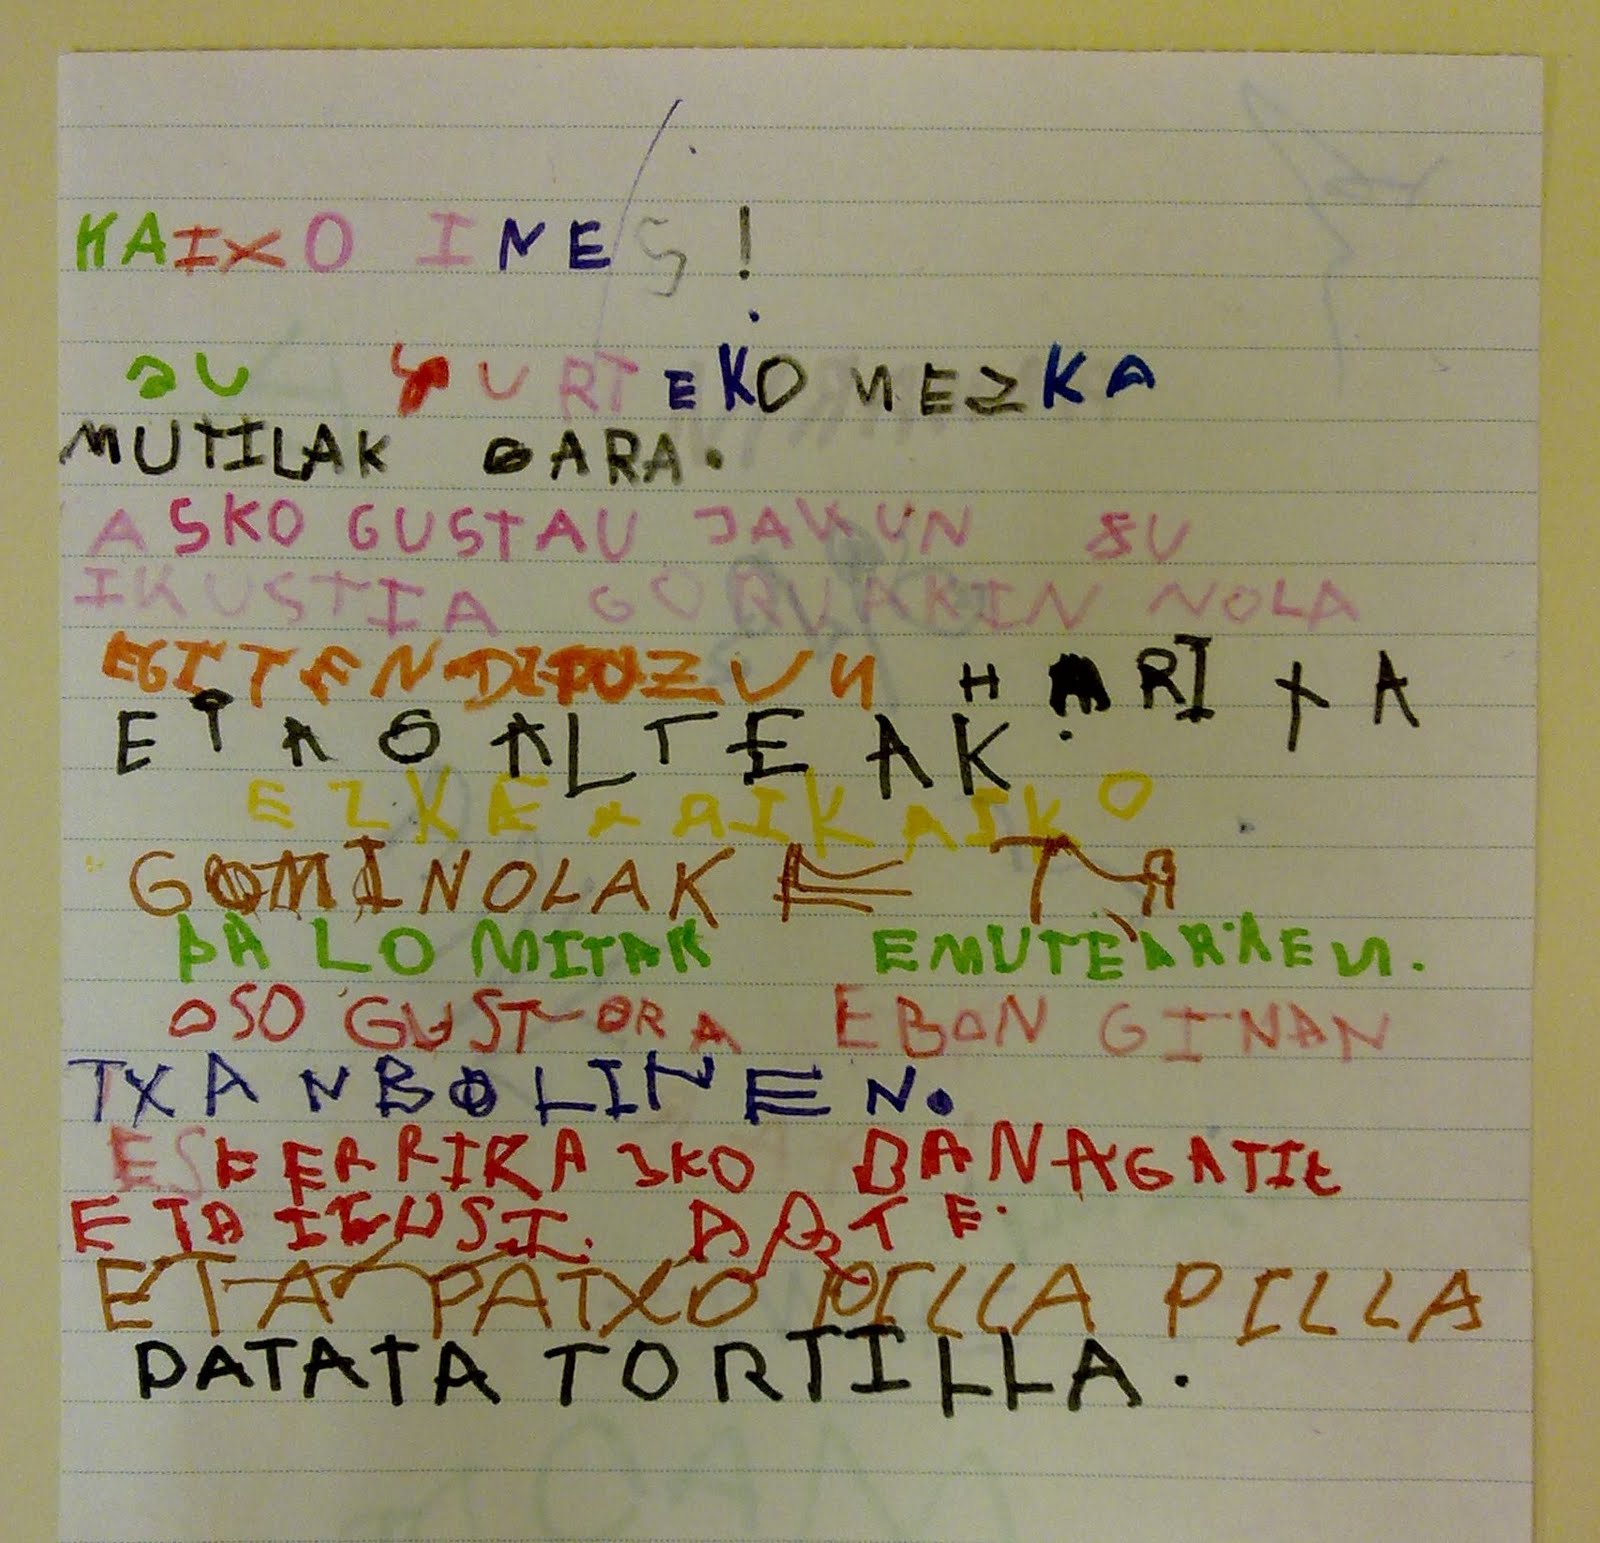 KAIXO INES!
GU 5 URTEKO NEZKA
MUTILAK GARA.
ASKO GUSTAU JAKUN SU
IKUSTIA GORUAKIN NOLA
EGITEN DITUZUN HARIXA
ETA GALTEAK.
EZKERRIKASKO
GOMINOLAK ETA
PALOMITAK EMUTEARREN.
OSO GUSTORA EBON GINAN
TXANBOLINEN.
ESKERRIKASKO DANAGATIK
ETA IKUSI ARTE.
ETA PATXO PILLA PILLA
PATATA TORTILLA.